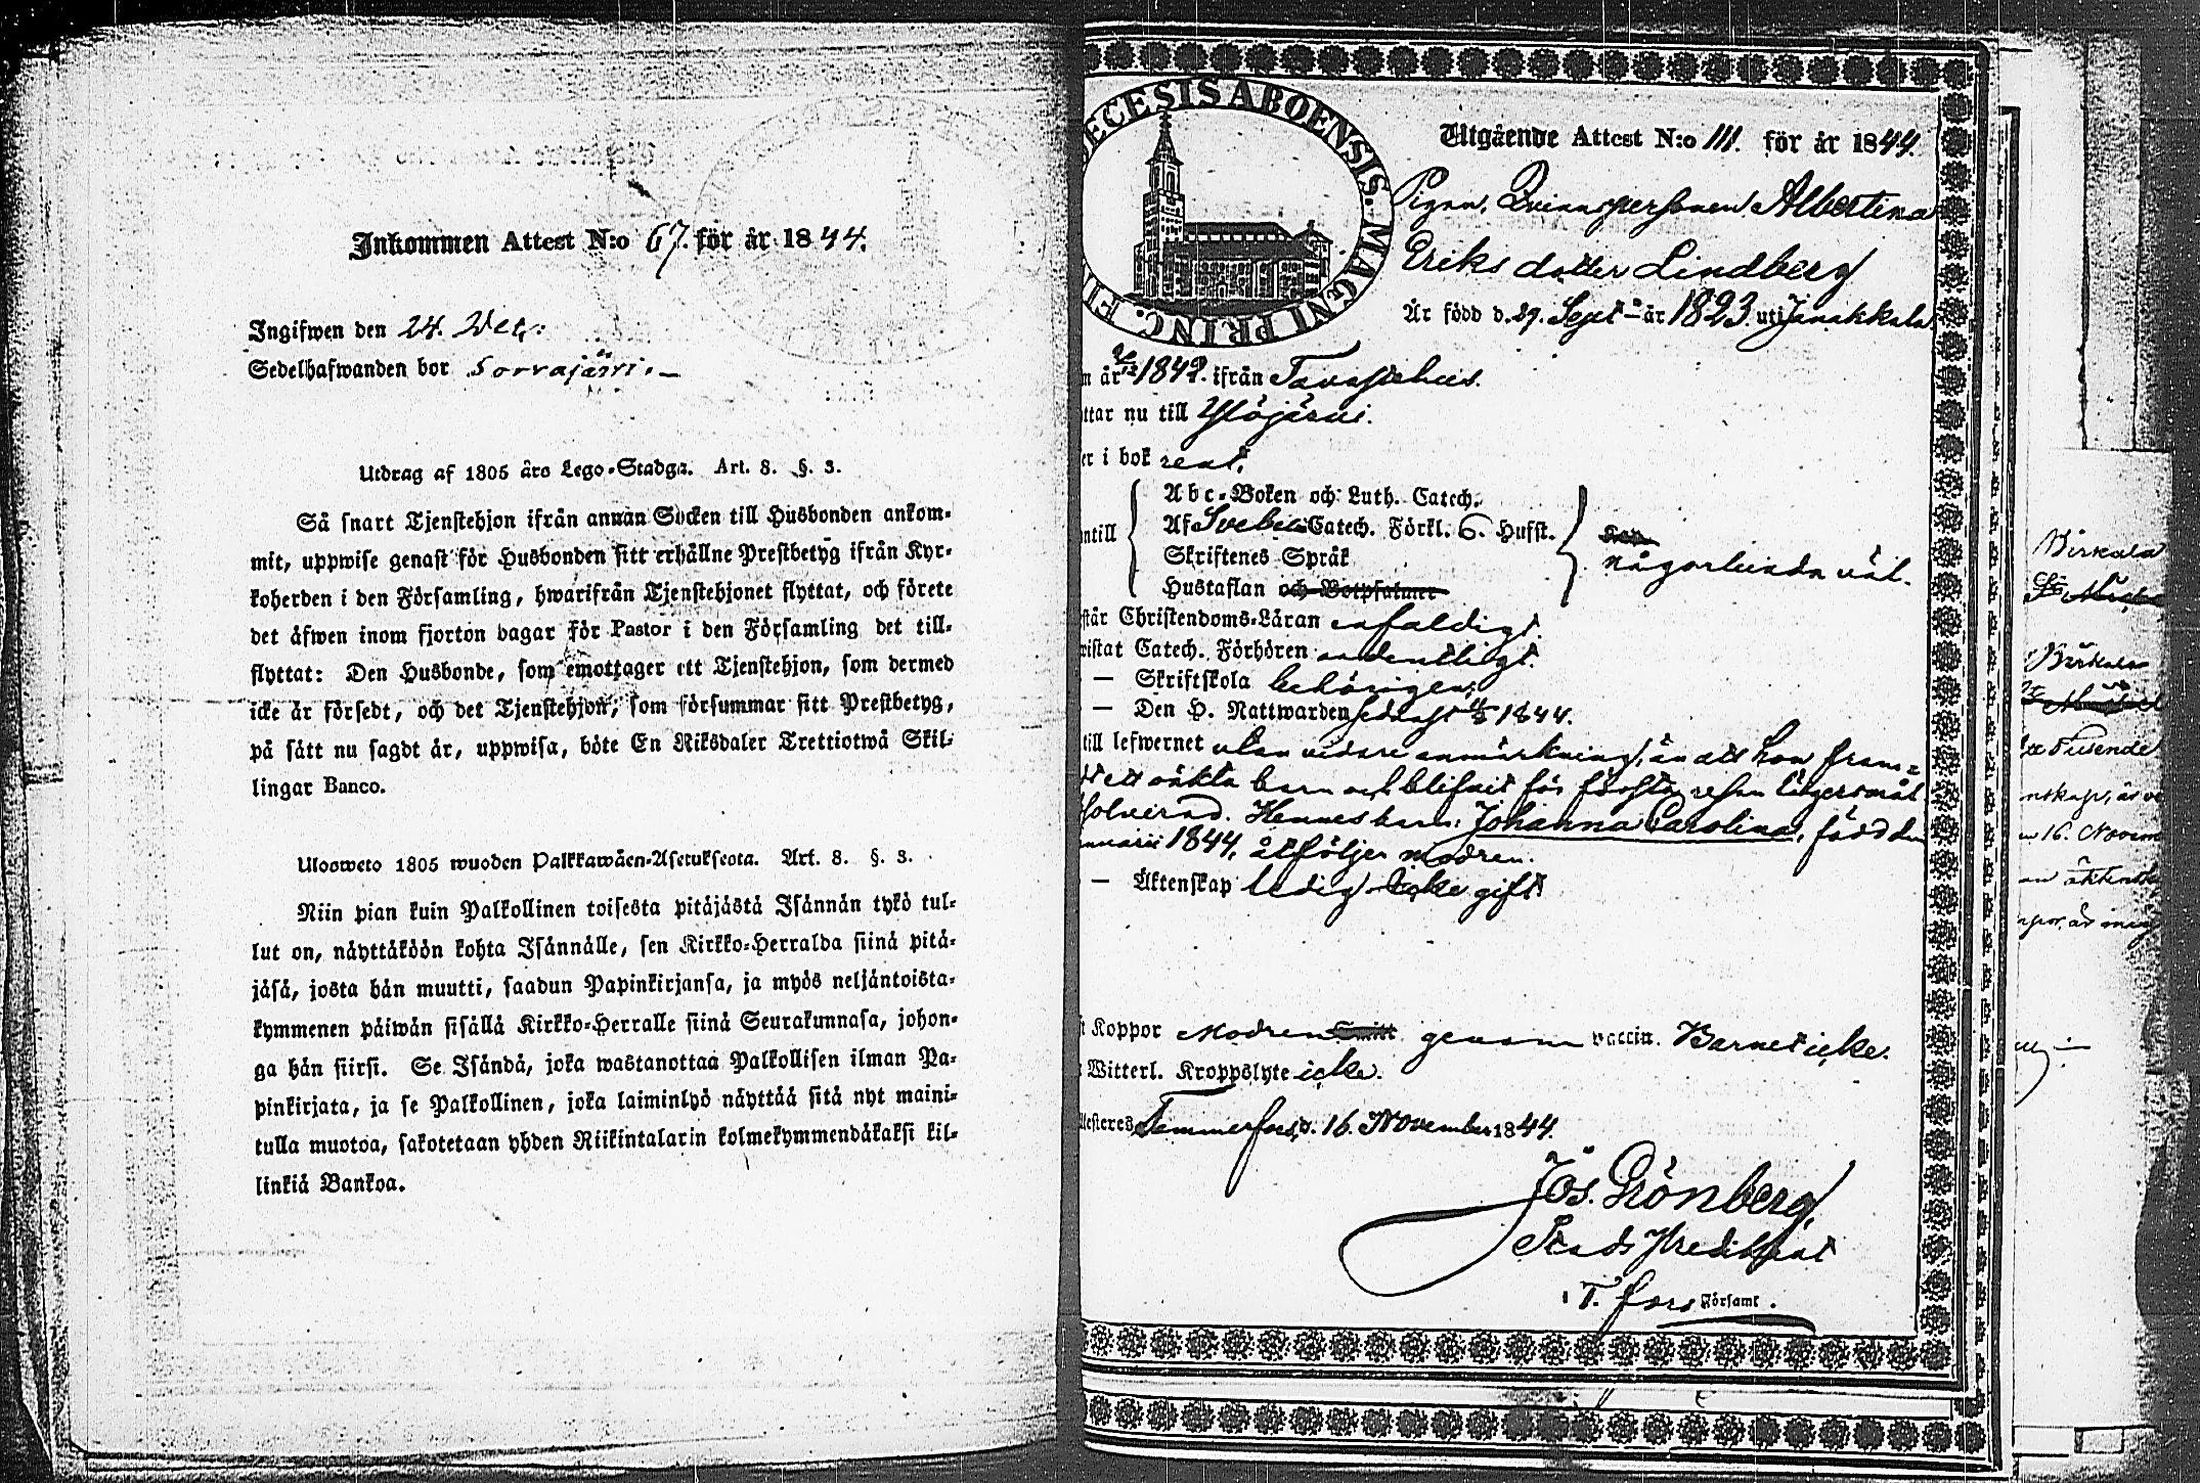 Inkommen Attest N:o 67. för år 1844.
Ingifwen den 24. Dec:
Sedelhafwanden bor Sorrajärvi.
Utdrag af 1805 års Lego-Stadga. Art. 8. §. 3.
Så snart Tjenstehjon ifrån annan Socken till Husbonden ankom-
mit, uppwise genast för Husbonden sitt erhållne Prestbetyg ifrån Kyr-
koherden i den Församling, hwarifrån Tjenstehjonet flyttat, och förete
det äfwen inom fjorton dagar för Pastor i den Församling det till-
flyttat: Den Husbonde, som emottager ett Tjenstehjon, som dermed
icke är försedt, och det Tjenstehjon, som försummar sitt Prestbetyg,
på sätt nu sagdt är, uppwisa, böte En Riksdaler Trettiotwå Skil-
lingar Banco.
Ulosweto 1805 wuoden Palkkawäen-Asetuksesta. Art. 8. §. 3.
Niin pian kuin Palkollinen toisesta pitäjästä Isännän tykö tul-
lut on, näyttäköön kohta Isännälle, sen Kirkko-Herralda siinä pitä-
jäsä, josta hän muutti, saadun Papinkirjansa, ja myös neljäntoista-
kymmenen päiwän sisällä Kirkko-Herralle siinä Seurakunnasa, johon-
ga hän siirsi. Se Isändä, joka wastanottaa Palkollisen ilman Pa-
pinkirjata, ja se Palkollinen, joka laiminlyö näyttää sitä nyt maini-
tulla muotoa, sakotetaan yhden Riikintalarin kolmekymmendäkaksi kil-
linkiä Bankoa.
ECESIS ABOENSIS. MAGNI PRINC. FI
Utgående Attest N:o 111. för år 1844.
Pigan, Qvinnspersonen Albertina
Eriks dotter Lindberg
Är född d. 29. Sept år 1823. uti Janakkala
år 1842. ifrån Tavastehus.
ttar nu till Ylöjärvi.
er i bok rent.
ntill
Abc-Boken och Luth. Catech.
Af Svebelii Catech. Förkl. 6. Hufst.
Skriftenes Språk
Hustaflan och Botpsalmer
någorlunda väl.
står Christendoms-Läran enfaldigt.
ristat Catech. Förhören ordentligt.
— Skriftskola behörigen.
— Den H. Nattwarden sednast 1844.
till lefwernet utan vidare anmärkning, än att hon fram=
ett oäkta barn och blifvit för första resan lägersmål
solverad. Hennes barn: Johanna Carolina, född den
nuarii 1844, åtföljer modren.
— Äktenskap ledig icke gift
Koppor Modren genom vaccin. Barnet icke.
Witterl. Kroppslyte icke.
testeres Tammerfors, d. 16. November 1844.
Jos. Grönberg,
Stads Predikant
i T.fors Församl.
Birkala
Birkala
Tusende
nskap, är
16. Novem